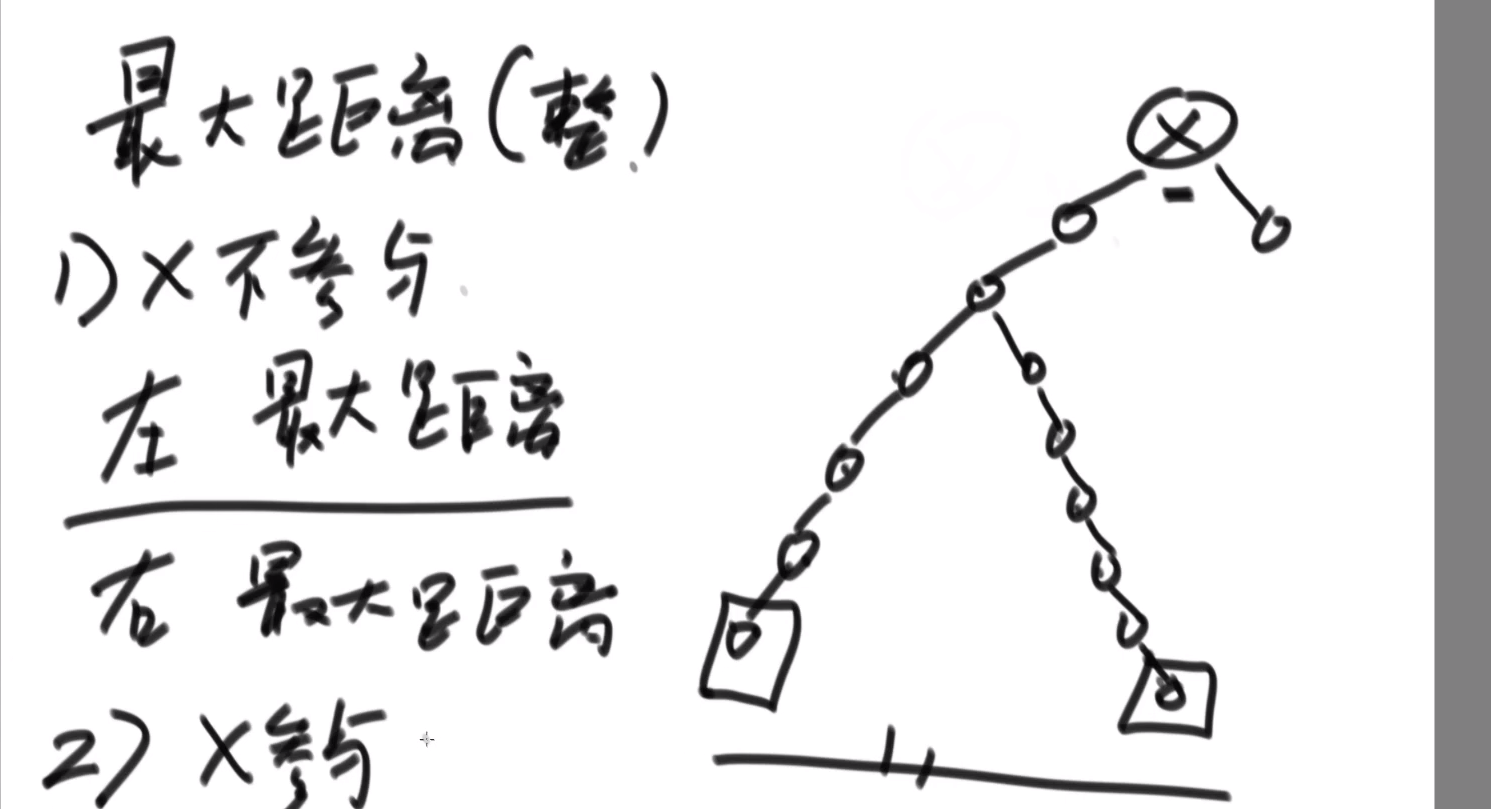 最大距离(整)
1) X 不参与
左 最大距离
右 最大距离
2) X 参与
X